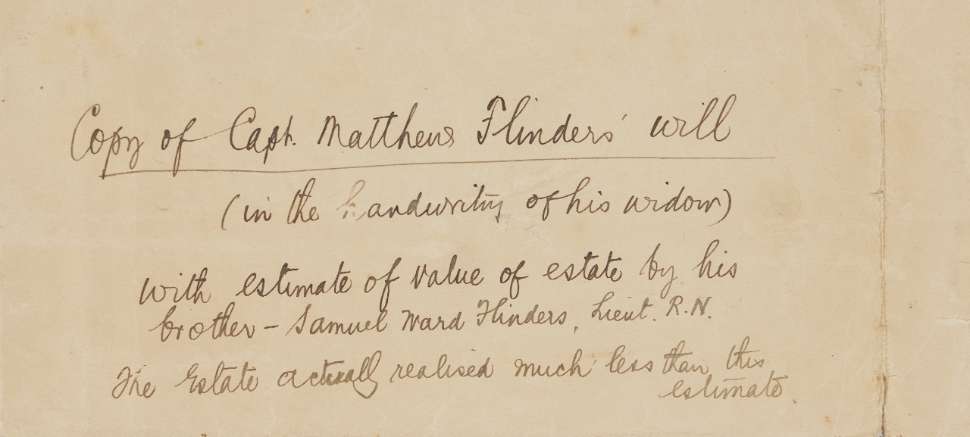 Copy of Capt. Matthew Flinders' will
(in the handwriting of his widow)
with estimate of value of estate by his
brother - Samuel Ward Flinders, Lieut. R.N.
The Estate actually realised much less than this
estimate.